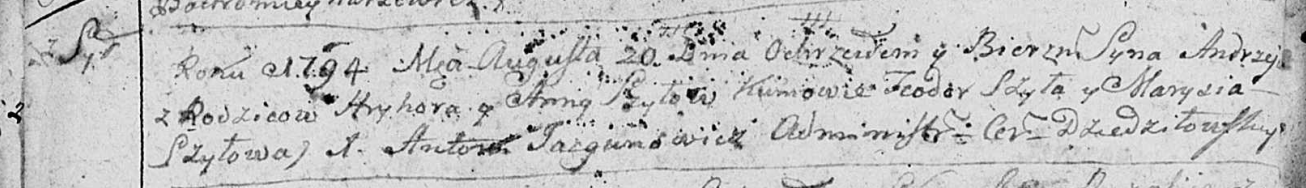 Roku 1794 Mca Augusta 20 Dnia Ochrzciłem y Bierzm Syna Andrzej
z Rodzicow Hryhora y Anny Szyłow Kumowie Teodor Szyła y Marysia
Szyłowa) X. Antoni Jazgunowicz Administr Cer Dziedziłowskey